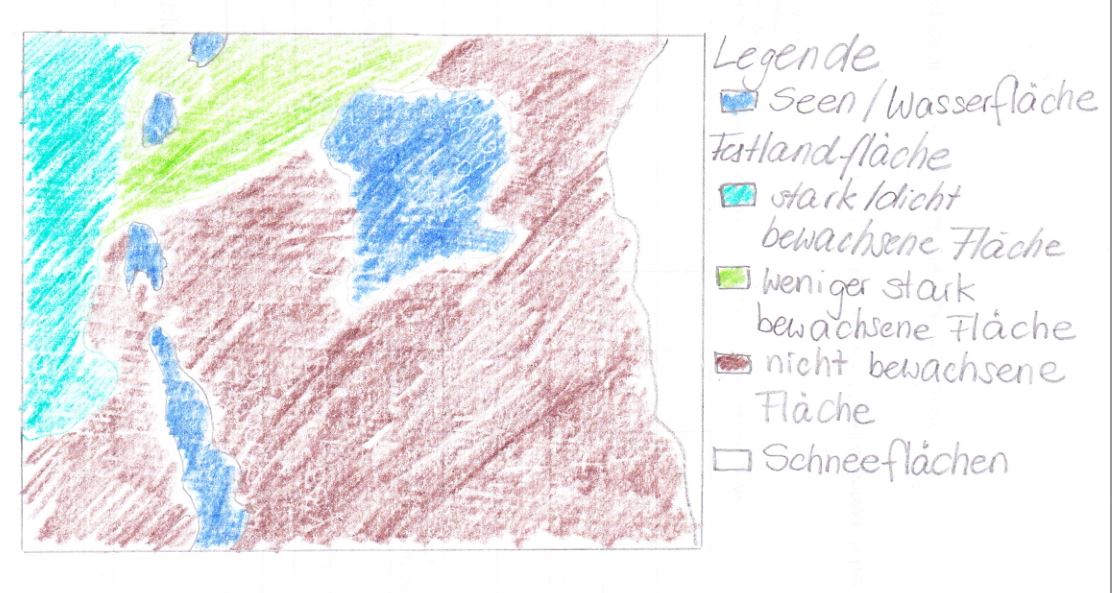 Legende
Seen/Wasserfläche
Festlandfläche
stark/dicht
bewachsene Fläche
weniger stark
bewachsene Fläche
nicht bewachsene
Fläche
Schneeflächen